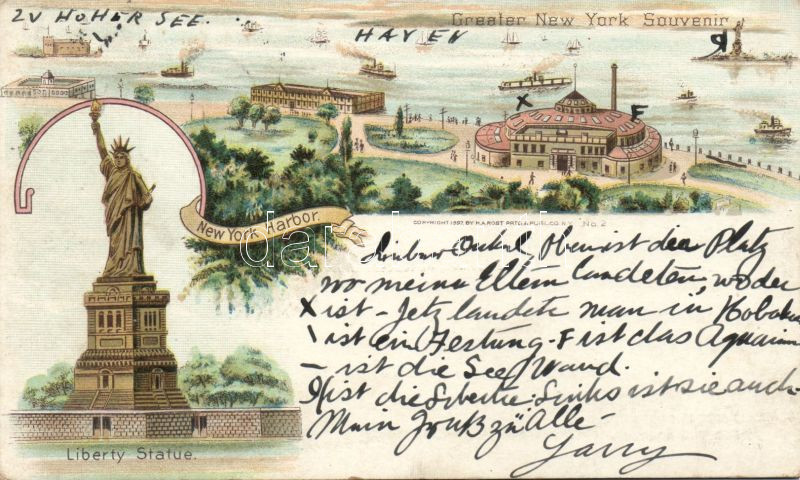 ZU HOHER SEE.
HAVEN
Greater New York Souvenir
Я
X
F
New York Harbor.
COPYRIGHT 1897, BY H.A.ROST PRTG.& PUBL.CO. N.Y. No. 2
Lieber Onkel, Oben ist der Platz
wo meine Eltern landeten, wo der
X ist - Jetz landete man in Hoboken
\ ist ein Festung - F ist das Aquarium
— ist die See Wand.
Я ist die Liberthe - Links ist sie auch -
Mein Gruß zu Alle -
Liberty Statue.